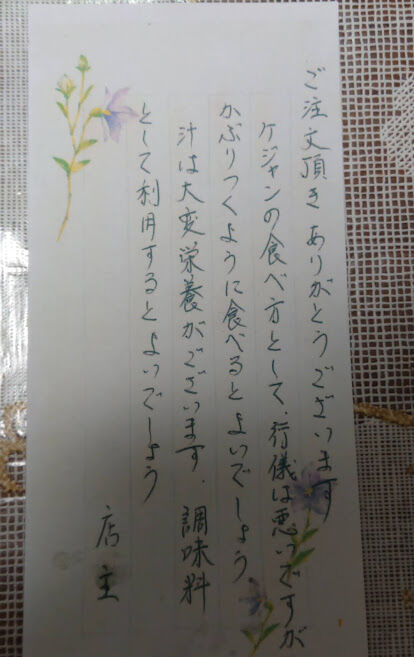 ご注文頂き ありがとうございます
ケジャンの食べ方として、行儀は悪いですが
かぶりつくように食べるとよいでしょう。
汁は大変栄養がございます。調味料
として利用するとよいでしょう
店主